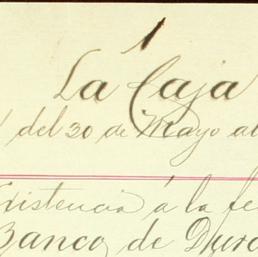 1
La Caja
del 20 de Mayo al
Existencia á la fe
Banco de Dura